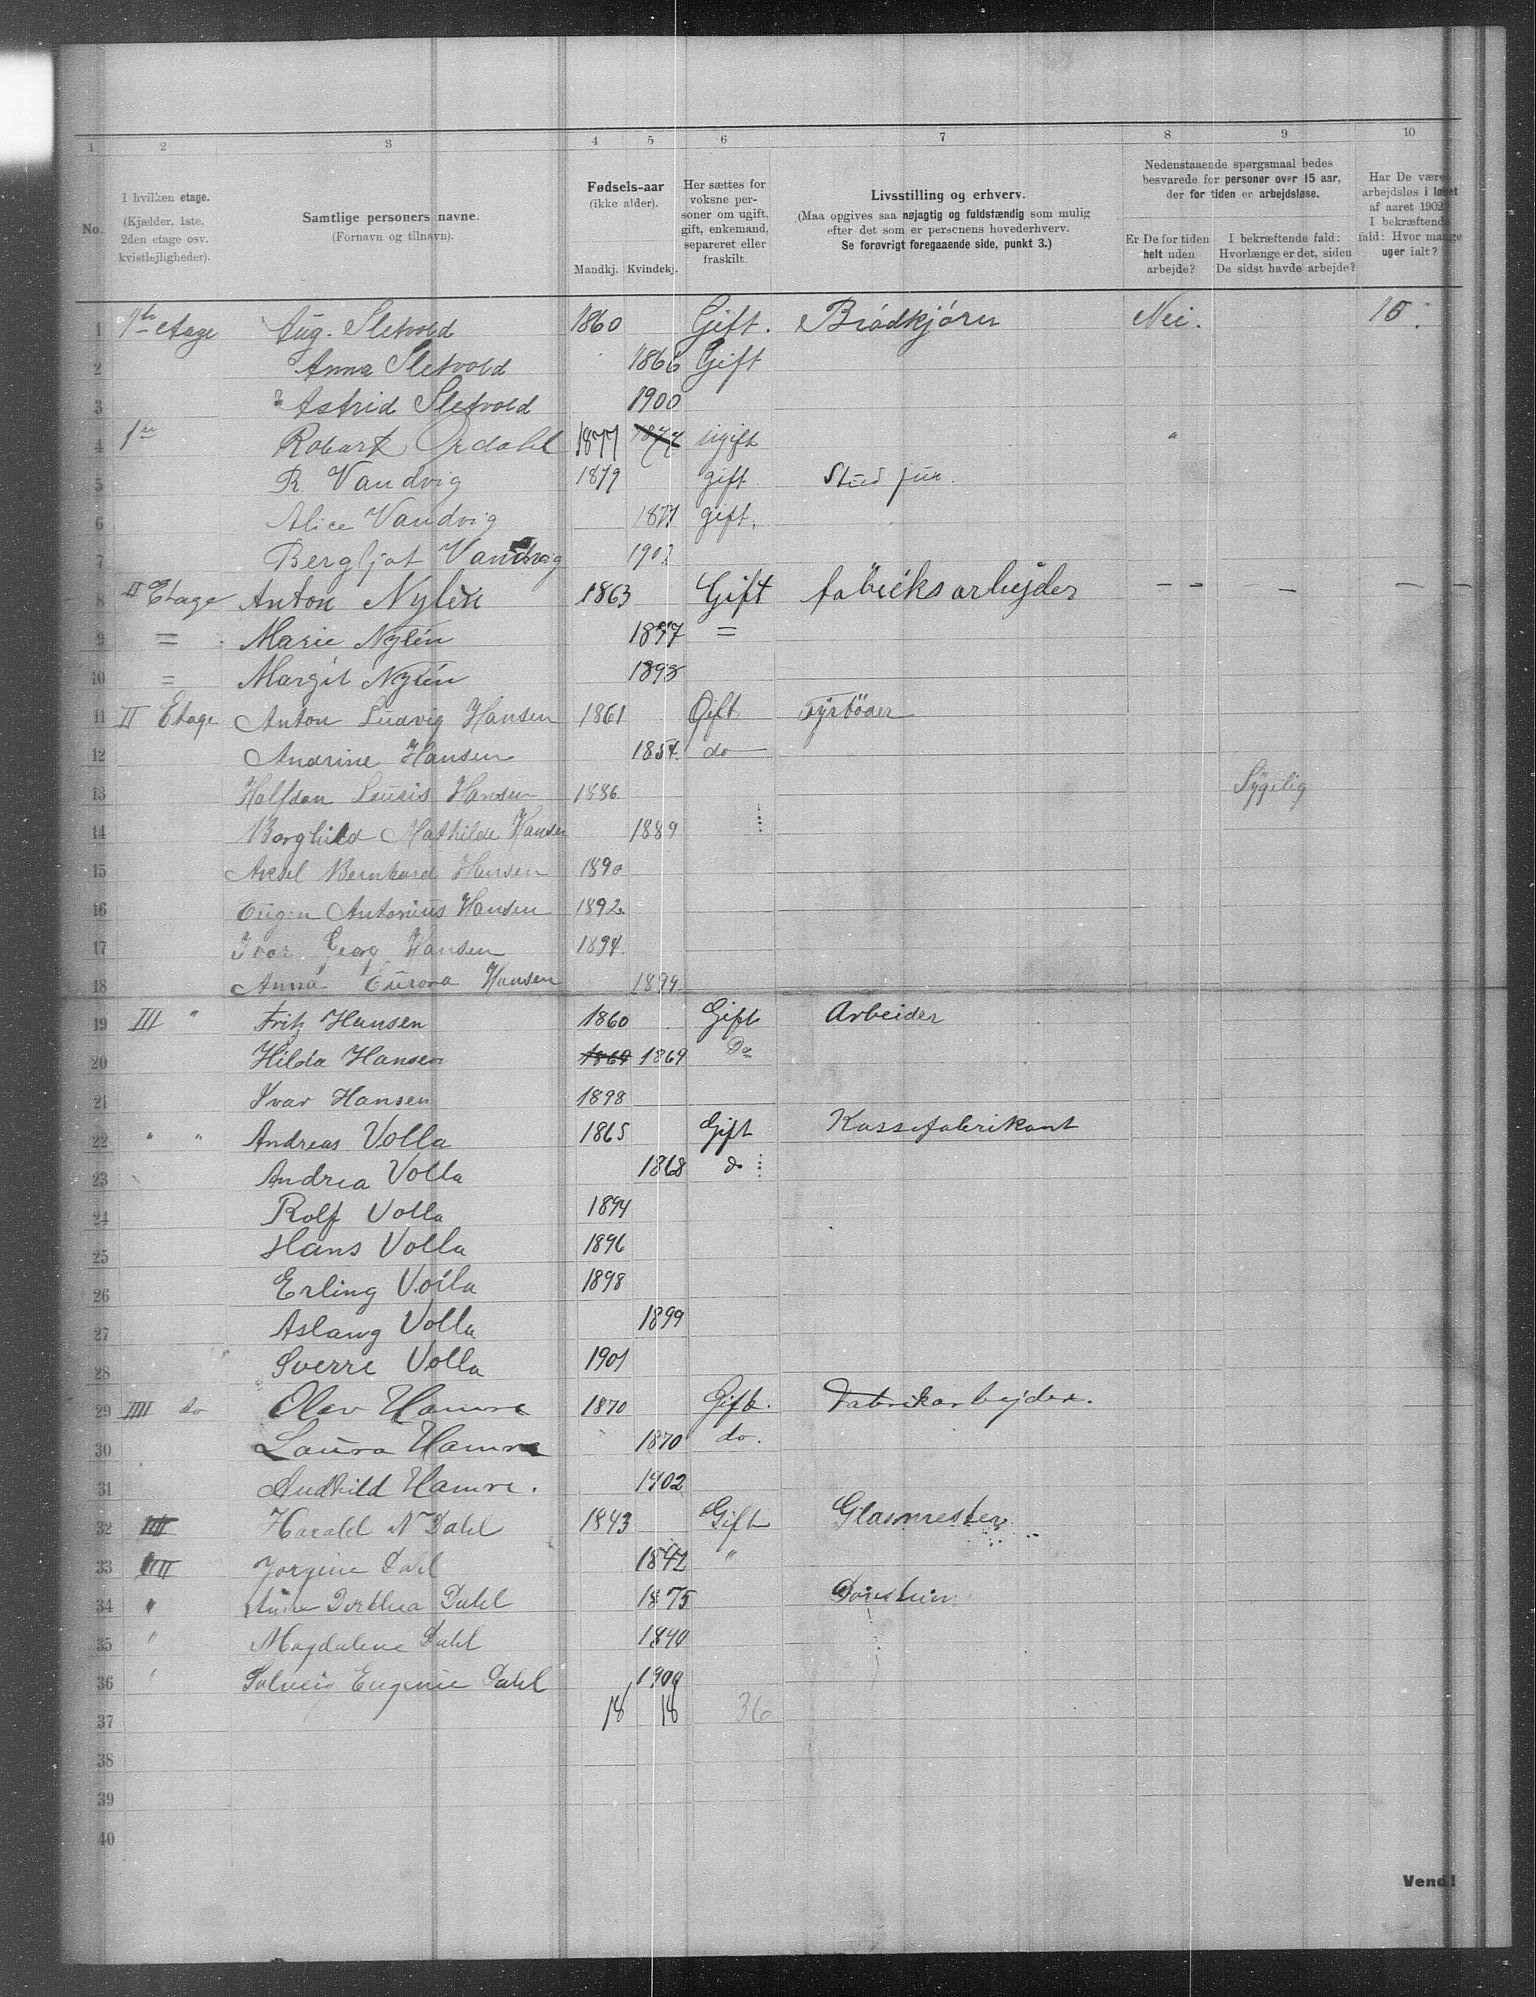 1 2 3 4 5 6 7 8 9 10
No.
I hvilken etage.
(Kjælder, 1ste,
2den etage osv.
kvistlejligheder).
Samtlige personers navne.
(Fornavn og tilnavn).
Fødsels-aar
(ikke alder).
Mandkj. Kvindekj.
Her sættes for
voksne per-
soner om ugift,
gift, enkemand,
separeret eller
fraskilt.
Livsstilling og erhverv.
(Maa opgives saa nøjagtig og fuldstændig som mulig
efter det som er personens hovederhverv.
Se forøvrigt foregaaende side, punkt 3.)
Nedenstaaende spørgsmaal bedes
besvarede for personer over 15 aar,
der for tiden er arbejdsløse.
Er De for tiden
helt uden
arbejde?
I bekræftende fald:
Hvorlænge er det, siden
De sidst havde arbejde?
Har De være
arbejdsløs i løbet
af aaret 1902
I bekræftende
fald: Hvor mange
uger ialt?
1 1ste etage Aug. Sletvold 1860 Gift. Brødkjører Nei.
2 Anna Sletvold 1866 Gift
3 Astrid Sletvold 1900
4 1ste Robart Ordahl 1877 1877 ugift "
5 R Vandvig 1879 gift Stud jur.
6 Alice Vandvig 1877 gift.
7 Bergljot Vandvig
8 II Etage Anton Nylén 1863 Gift fabriksarbejder - - - - -
9 = Marie Nylén =
10 = Margit Nylén 1893
11 II Etage Anton Ludvig Hansen 1861 Gift Fyrbøder
12 Andrine Hansen 1854. do
13 Halfdan Louis Hansen 1886. Sygelig
14 Borghild Mathilde Hansen 1889
15 Aksel Bernhard Hansen 1890
16 Eugen Antonius Hansen 1892.
17 Ivar Georg Hansen 1894.
18 Anna Aurora Hansen 1899.
19 III " Fritz Hansen 1860 Gift Arbeider
20 Hilda Hansen 1869 1869 Do
21 Ivar Hansen 1898
22 " " Andreas Volla 1865 Gift Kassefabrikant
23 Andrea Volla 1868 do
24 Rolf Volla 1894
25 Hans Volla 1896
26 Erling Volla 1898
27 Aslaug Volla 1899
28 " Sverre Volla 1901
29 IIII do Olav Hamre 1870 Gift. Fabrikarbejder.
30 Laura Hamre 1870 do.
31 Audhild Hamre. 1902
32 IIII Harald N Dahl 1843 Gift Glasmester
33 IIII Jorgine Dahl 1842 "
34 " Anne Dorthea Dahl 1875
35 " Magdalene Dahl
36 " Solveig Eugenie Dahl 1900
37 18 18 36
38
39
40
Vend!